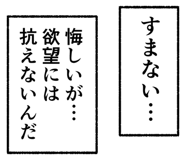 すまない…
悔しいが…
欲望には
抗えないんだ